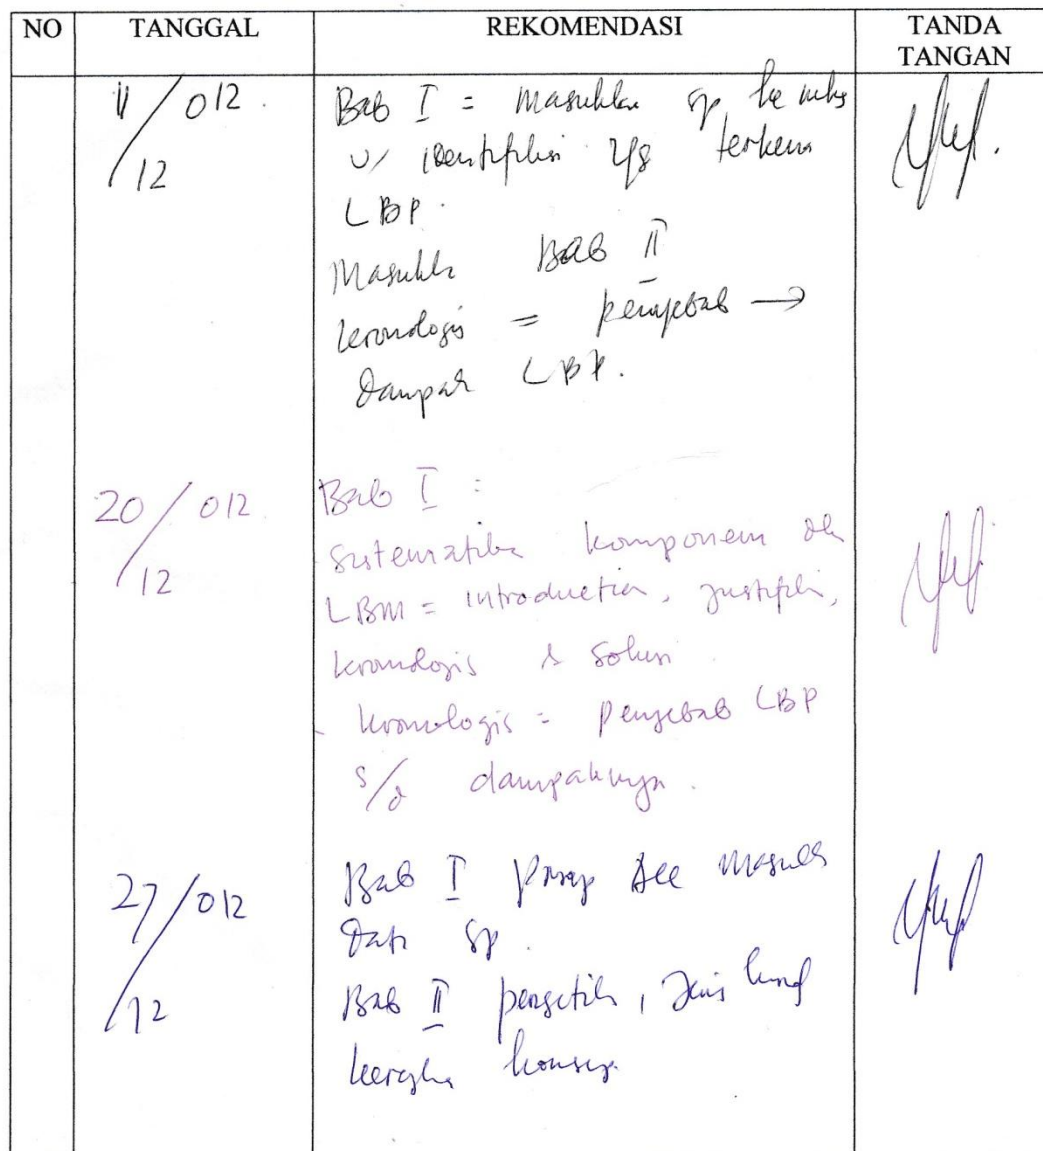 NO TANGGAL REKOMENDASI TANDA TANGAN
11/12 012. Bab I = Masukkan sp ke
u/ yg terkena
LBP.
Masukk Bab II
kronologis = penyebab →
Dampak LBP.
20/12 012 Bab I :
Sistematika komponen
LBM = introduction, justifik,
kronologis & Solusi
- kronologis = penyebab LBP
s/d dampaknya.
27/12 012 Bab I prinsip Acc masuk
Data sp.
Bab II pengetik, Jenis
kerangka konsep